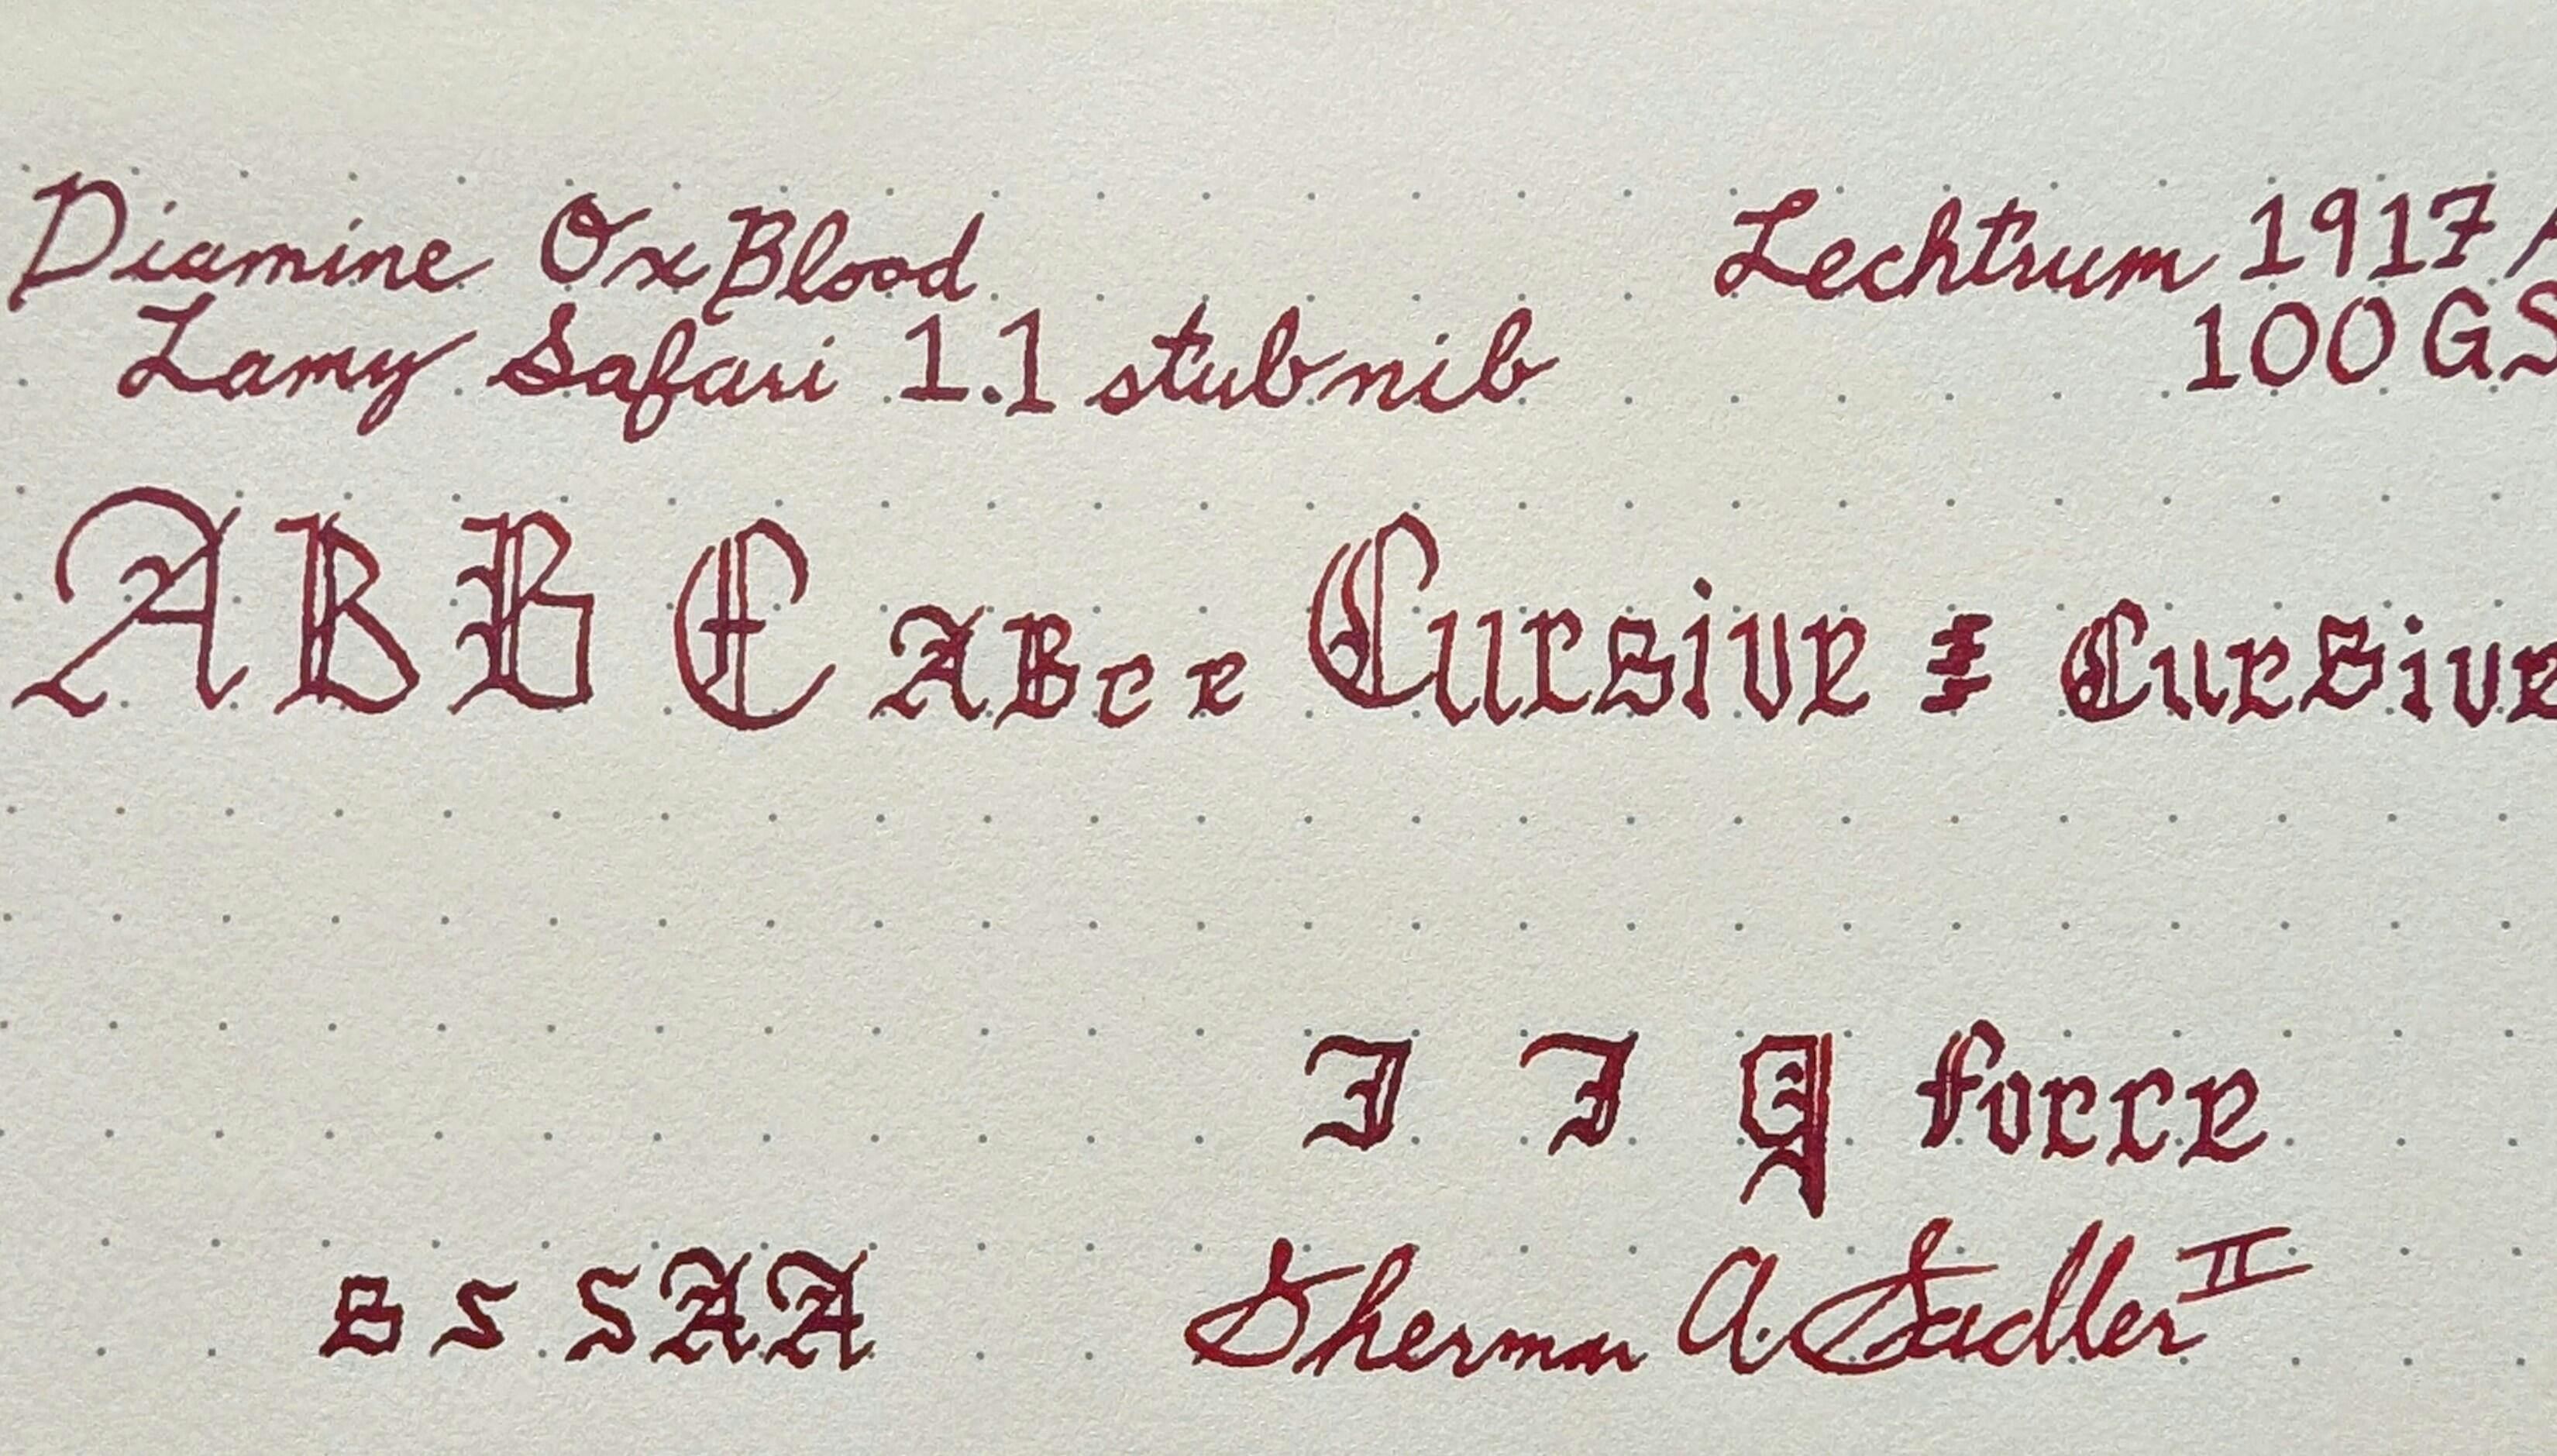 Diamine OxBlood Lechtrum 1917
Lamy Safari 1.1 stub nib 100 GS
A B B C A B c e Cursive Cursive
I I g force
s s S A A Sherman A. Sadler II